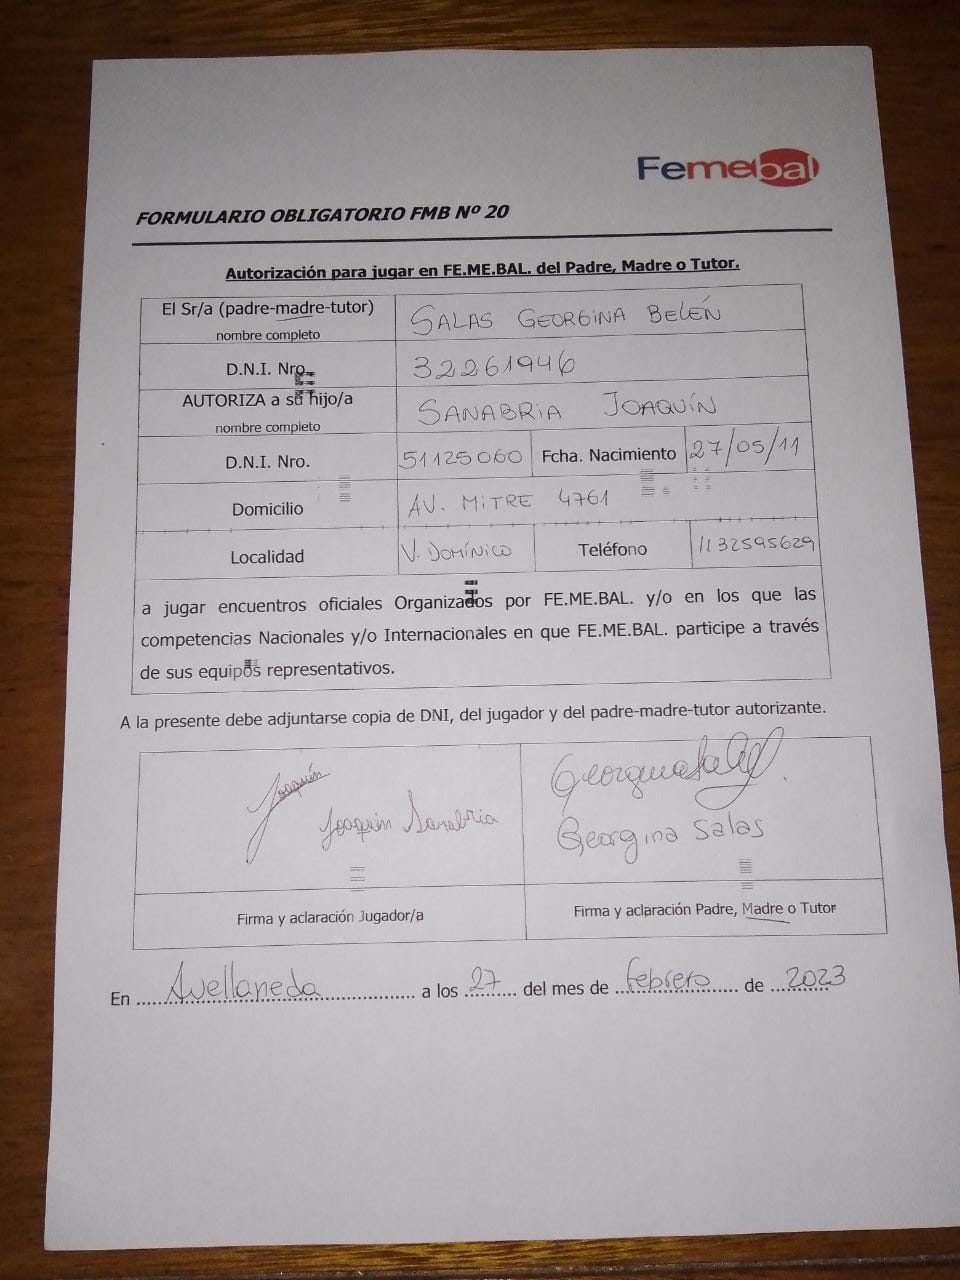 Femebal
FORMULARIO OBLIGATORIO FMB Nº 20
Autorización para jugar en FE.ME.BAL. del Padre, Madre o Tutor.
El Sr/a (padre-madre-tutor)
nombre completo
SALAS GEORGINA BELÉN
D.N.I. Nro.
32261946
AUTORIZA a su hijo/a
nombre completo
SANABRIA JOAQUÍN
D.N.I. Nro.
51125060
Fcha. Nacimiento
27/05/11
Domicilio
AV. MITRE 4761
Localidad
V. DOMÍNICO
Teléfono
1132595629
a jugar encuentros oficiales Organizados por FE.ME.BAL. y/o en los que las
competencias Nacionales y/o Internacionales en que FE.ME.BAL. participe a través
de sus equipos representativos.
A la presente debe adjuntarse copia de DNI, del jugador y del padre-madre-tutor autorizante.
Joaquín
Joaquín Sanabria
Georgina Salas
Firma y aclaración Jugador/a
Firma y aclaración Padre, Madre o Tutor
En Avellaneda a los 27 del mes de febrero de 2023